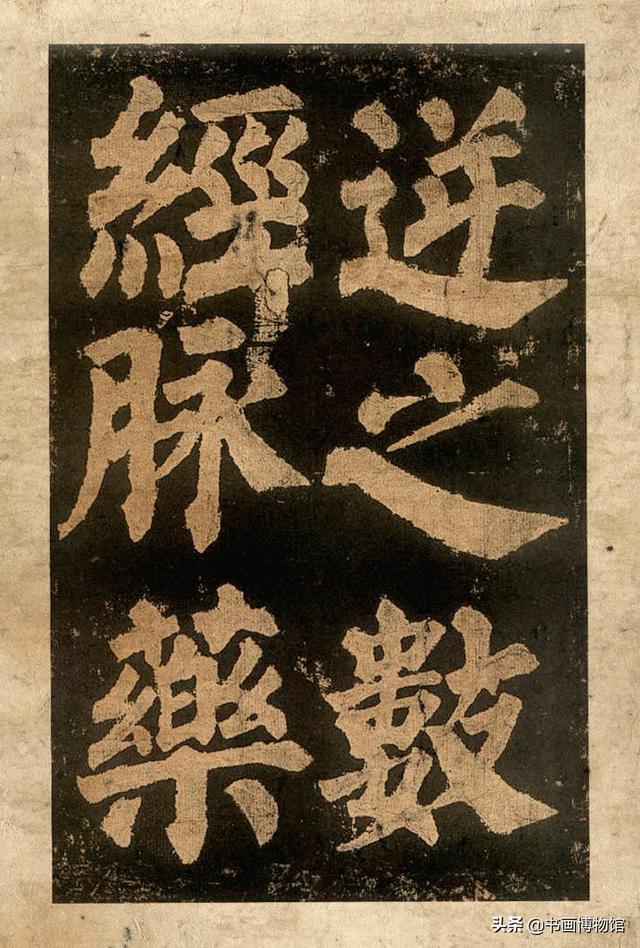 逆之數
經脉藥
头条 @书画博物馆